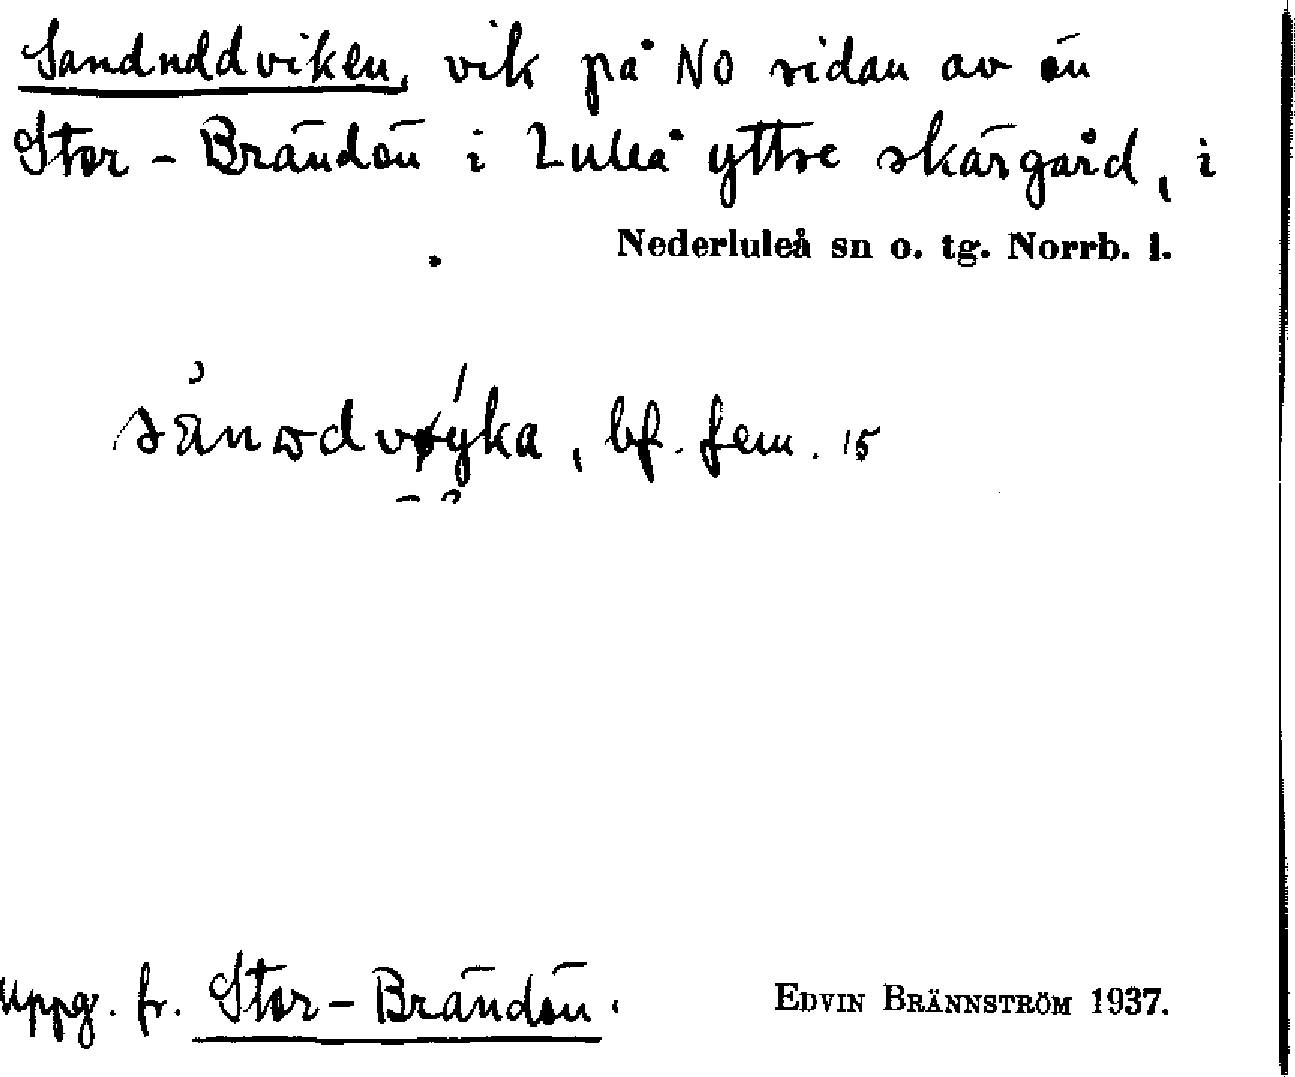 Sanduddviken, vik på NO sidan av ön
Stor-Brändön i Luleå yttre skärgård, i
Nederluleå sn o. tg. Norrb. l.
bf. fem. 15
Uppg. fr. Stor-Brändön.
EDVIN BRÄNNSTRÖM 1937.